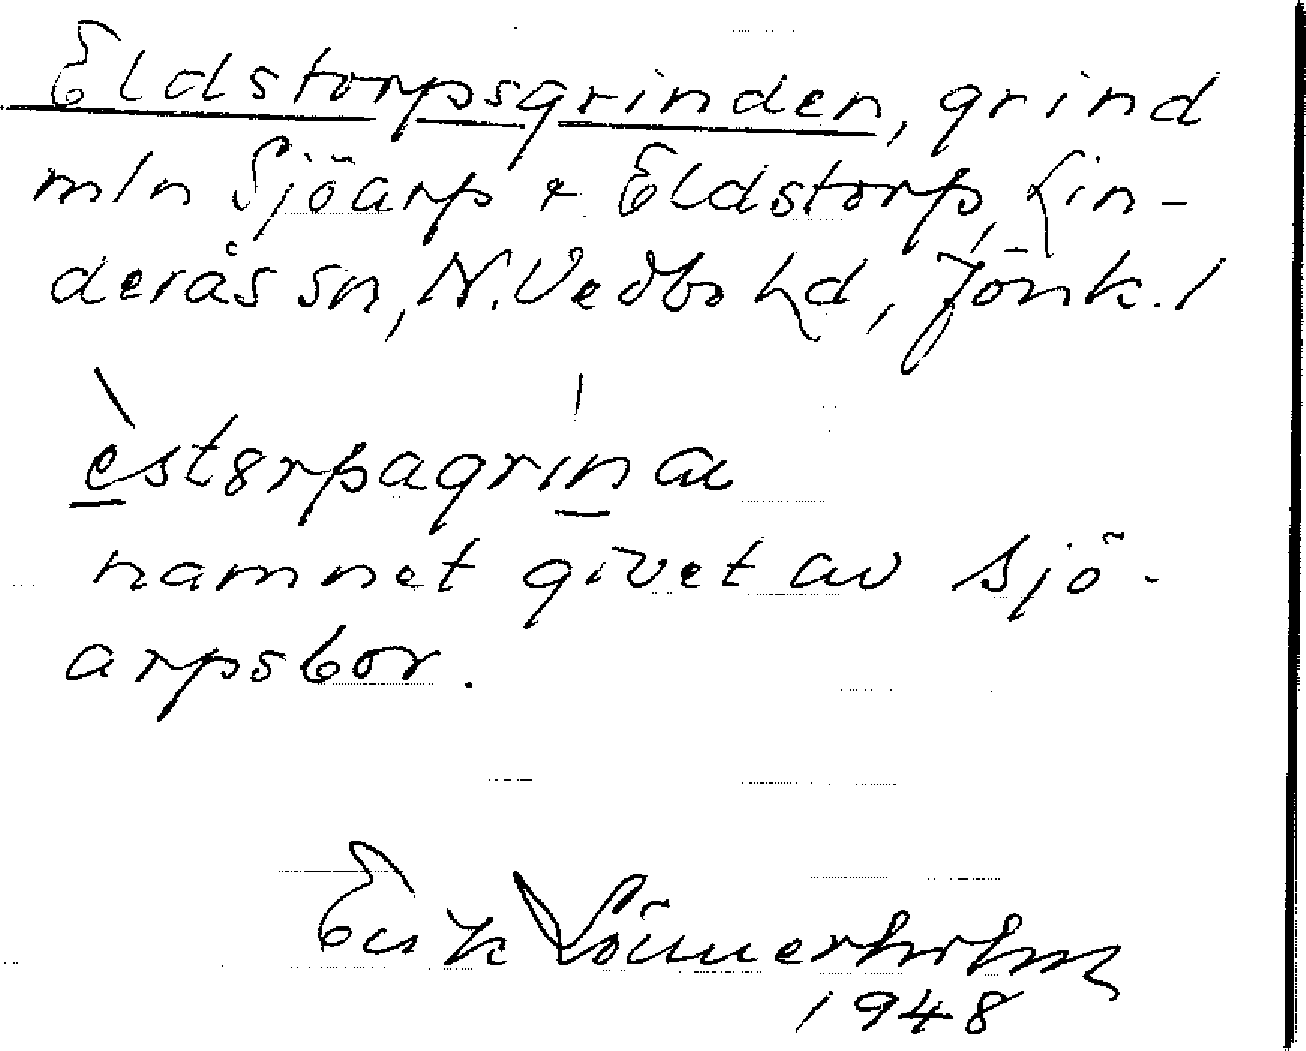 Eldstorpsgrinden, grind
mln Sjöarp & Eldstorp, Lin-
derås sn, N. Vedbo hd, Jönk. l
èst8rpagrina
namnet givet av Sjö-
arpsbor.
Erik Lönnerholm
1948